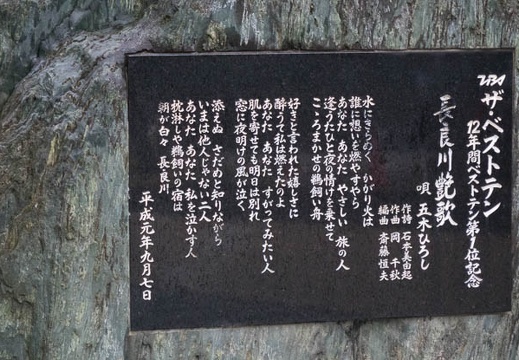 TBS ザ・ベストテン
12年間ベストテン第1位記念
長良川艶歌
唄 五木ひろし
作詩 石本美由起
作曲 岡 千秋
編曲 斎藤恒夫
水にきらめく かがり火は
誰に想いを燃やすやら
あなた あなた やさしい 旅の人
逢うたひと夜の情けを乗せて
こころまかせの鵜飼い舟
好きと言われた嬉しさに
酔うて私は燃えたのよ
あなた あなた すがってみたい人
肌を寄せても明日は別れ
窓に夜明けの風が泣く
添えぬ さだめと知りながら
いまは他人じゃない二人
あなた あなた 私を泣かす人
枕淋しや鵜飼いの宿は
朝が白々 長良川
平成元年九月七日